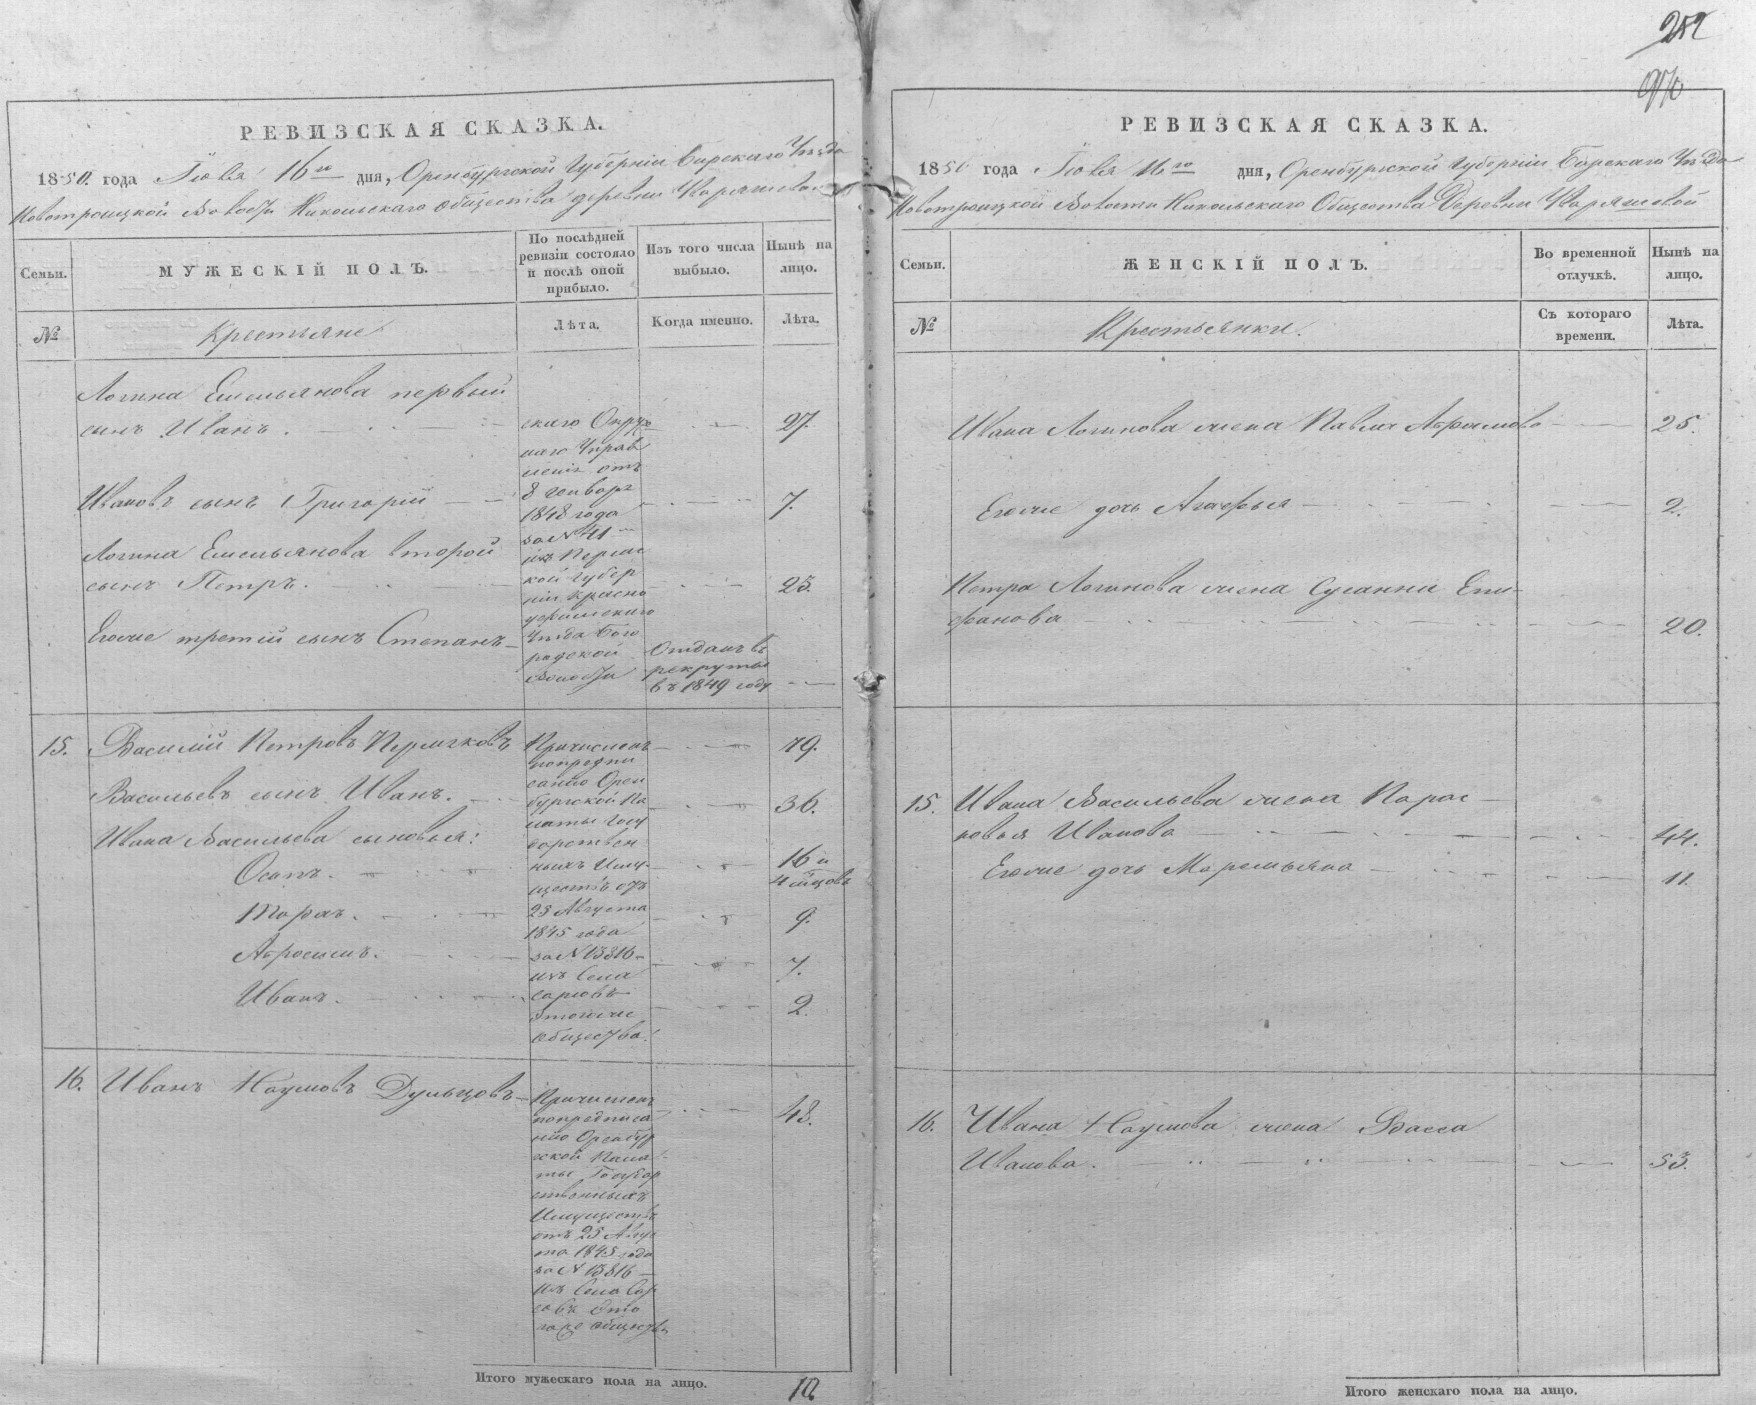 252
РЕВИЗСКАЯ СКАЗКА.
1850. года Iюня 16го дня, Оренбургской Губернiи Бирскаго Уѣзда
Новотроицкой Волости Никольскаго общества деревни
Семьи.
МУЖЕСКIЙ ПОЛЪ.
По послѣдней
ревизiи состояло
и послѣ оной
прибыло.
Изъ того числа
выбыло.
Нынѣ на
лицо.
№
Крестьяне
Лѣта.
Когда именно.
Лѣта.
Логина Емельянова первый
сынъ Иванъ.
27.
скаго Окруж
наго Управ
ленiя отъ
Ивановъ сынъ Григорiй
7.
8 генваря
1848 года
за № 41
Логина Емельянова второй
сынъ Петръ.
25.
изъ Перм
кой губер
нiи Красно
уфимскаго
Егоже третiй сынъ Степанъ
Уѣзда Бого
родской
волости
Отданъ въ
рекруты
въ 1849 году
15. Василiй Петровъ
79.
Причисленъ
по предпи
санiю Орен
бургской Па
латы Госу
дарствен
ныхъ Иму
ществъ отъ
23 Августа
1845 года
за № 13316
изъ Села
этогоже
общества.
Васильевъ сынъ Иванъ.
36.
Ивана Васильева сыновья:
Осипъ.
16 и
4 мѣсцовъ
Тарахъ.
9.
7.
Иванъ.
2.
16. Иванъ Наумовъ
48.
Причисленъ
по предписа
нiю Оренбур
ской Пала
ты Государ
ственныхъ
Имуществъ
отъ 23 Авгу
ста 1845 года
за № 13316
изъ Села
общества
Итого мужескаго пола на лицо.
10
РЕВИЗСКАЯ СКАЗКА.
1850 года Iюня 16го дня, Оренбургской Губернiи Бирскаго Уѣзда
Новотроицкой Волости Никольскаго Общества Деревни
Семьи.
ЖЕНСКIЙ ПОЛЪ.
Во временной
отлучкѣ.
Нынѣ на
лицо.
№
Крестьянки.
Съ котораго
времени.
Лѣта.
Ивана Логинова жена
25.
Егоже дочь Агафья
2.
Петра Логинова жена Сусанна Епи-
фанова
20.
15. Ивана Васильева жена Парас
ковья Иванова
44.
Егоже дочь Маремьяна
11.
16. Ивана Наумова жена Васса
Иванова.
53.
Итого женскаго пола на лицо.